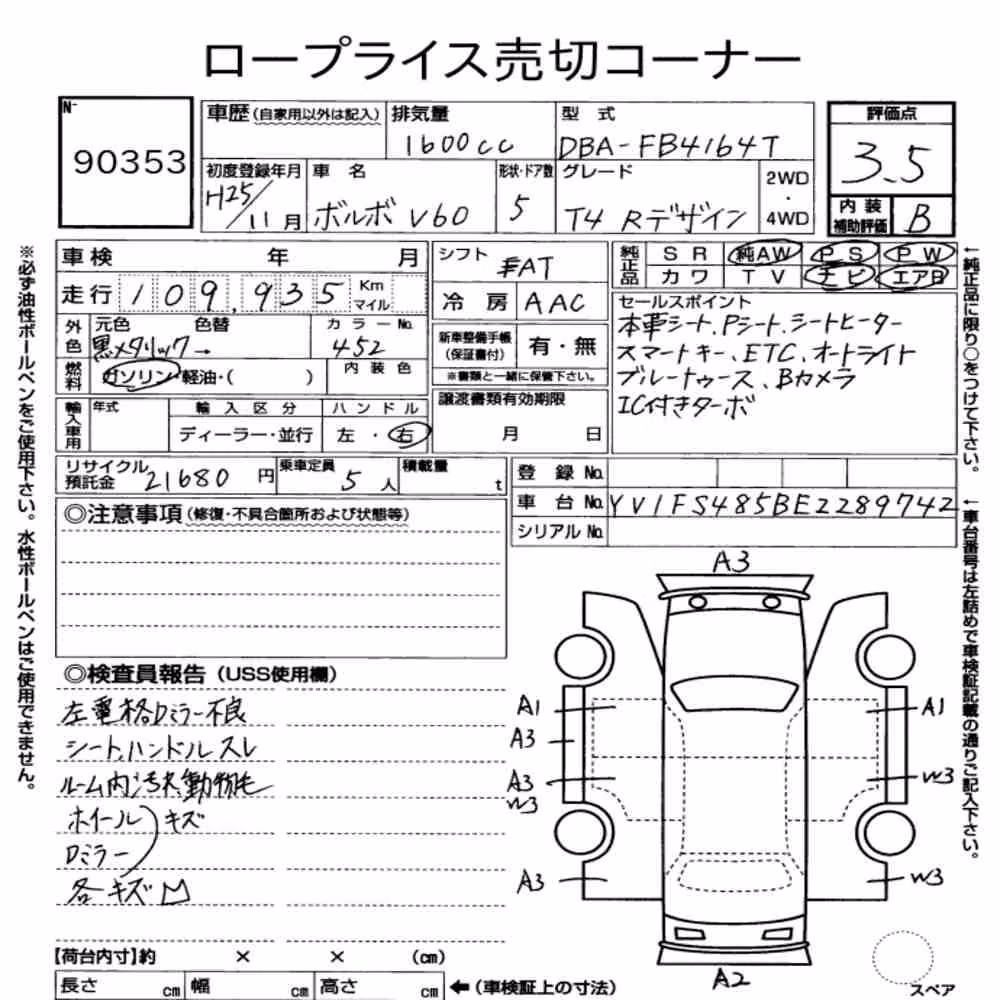 ロープライス売切コーナー
N-
90353
車歴(自家用以外は記入)
排気量
1600cc
型 式
DBA-FB4164T
初度登録年月
H25/11月
車 名
ボルボ V60
形状・ドア数
5
グレード
T4 Rデザイン
2WD
・
4WD
評価点
3.5
内装
補助評価
B
車検 年 月
走行 109,935 Km
マイル
外色
元色 色替
黒メタリック→
カラーNo.
452
燃料
ガソリン・軽油・( )
内装色
輸入車用
年式
輸入区分
ディーラー・並行
ハンドル
左・右
シフト
FAT
冷房 AAC
新車整備手帳
(保証書付)
有・無
※書類と一緒に保管下さい。
譲渡書類有効期限
月 日
純正品
SR 純AW PS PW
カワ TV ナビ エアB
セールスポイント
本革シート、Pシート、シートヒーター
スマートキー、ETC、オートライト
ブルートゥース、Bカメラ
IC付きターボ
←純正品に限り○をつけて下さい。
リサイクル
預託金
21680円
乗車定員
5人
積載量
t
登録No.
車台No. YV1FS485BE2289742
シリアルNo.
←車台番号は左詰めで車検証記載の通りご記入下さい。
※必ず油性ボールペンをご使用下さい。水性ボールペンはご使用できません。
◎注意事項(修復・不具合箇所および状態等)
◎検査員報告(USS使用欄)
左電格Dミラー不良
シート、ハンドルスレ
ルーム内汚れ動物毛
ホイール
キズ
Dミラー
各キズ凹
A3
A1
A3
A3
W3
A3
A1
W3
W3
A2
スペア
【荷台内寸】約 × × (cm)
長さ cm 幅 cm 高さ cm ←(車検証上の寸法)